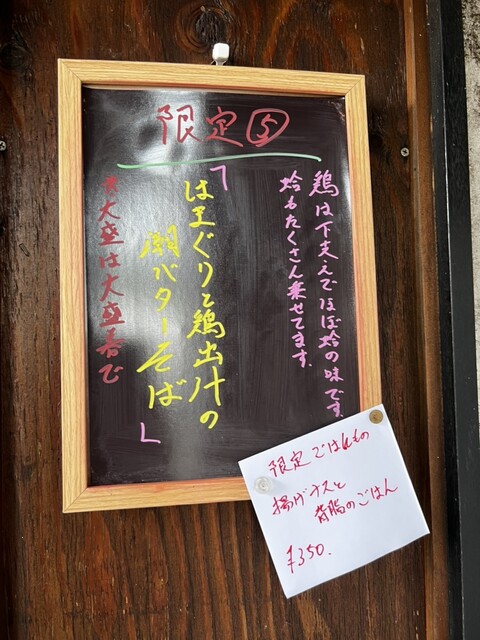 限定⑤
鶏は下支えでほぼ蛤の味です。
蛤もたくさん乗せてます。
「はまぐりと鶏出汁の
潮バターそば」
※大盛は大盛券で
限定ごはんもの
揚げナスと
背脂のごはん
¥350.